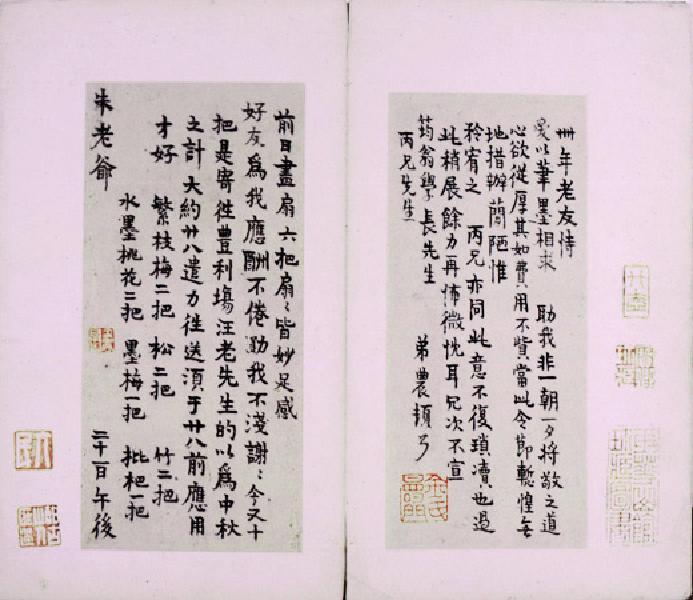 卅年老友恃
吳以筆墨相求 助我非一朝一夕將敬之道
心欲從厚其如費用不貲當此令節暫惶無
地措辦簡陋惟
矜宥之 丙兄亦同此意不復瑣瀆也過
此稍展餘力再佈微忱耳兄次不宣
筠翁學長先生
丙兄先生 弟農頓
前日畫扇六把扇〻皆妙足感
好友為我應酬不倦助我不淺謝〻今又十
把是寄往豐利場汪老先生的以為中秋
之計大約廿八遣力往送須于廿八前應用
才好 繁枝梅二把 松二把 竹二把
水墨桃花二把 墨梅一把 枇杷一把
朱老爺 二十一日午後